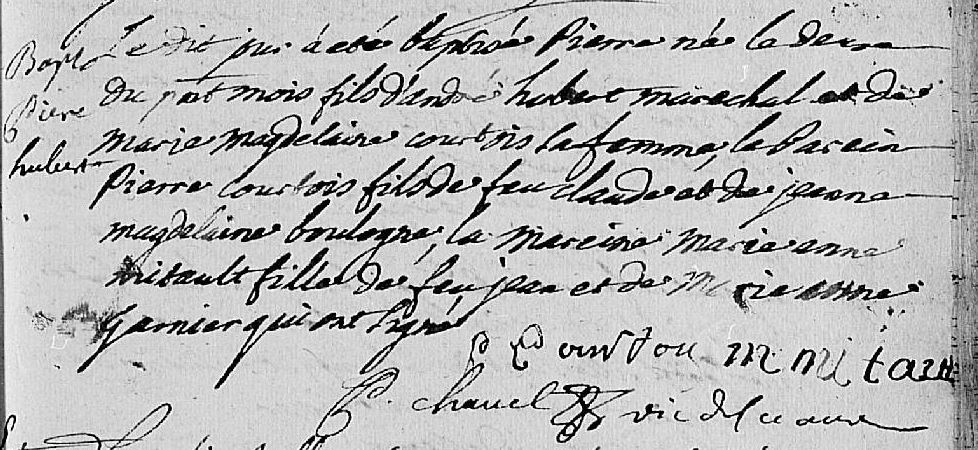 Bapt
Piere
hubert
Le dit jour à eté baptisé Pierre né le
du pnt mois fils d'andré hubert marechal et de
marie magdelaine courtois sa femme, le Parein
Pierre courtois fils de feu claude et de jeanne
magdelaine boulogne, la mareine marie anne
mitault fille de feu jean et de Marie anne
Garnier qui ont signé
m mitault
P. chauel